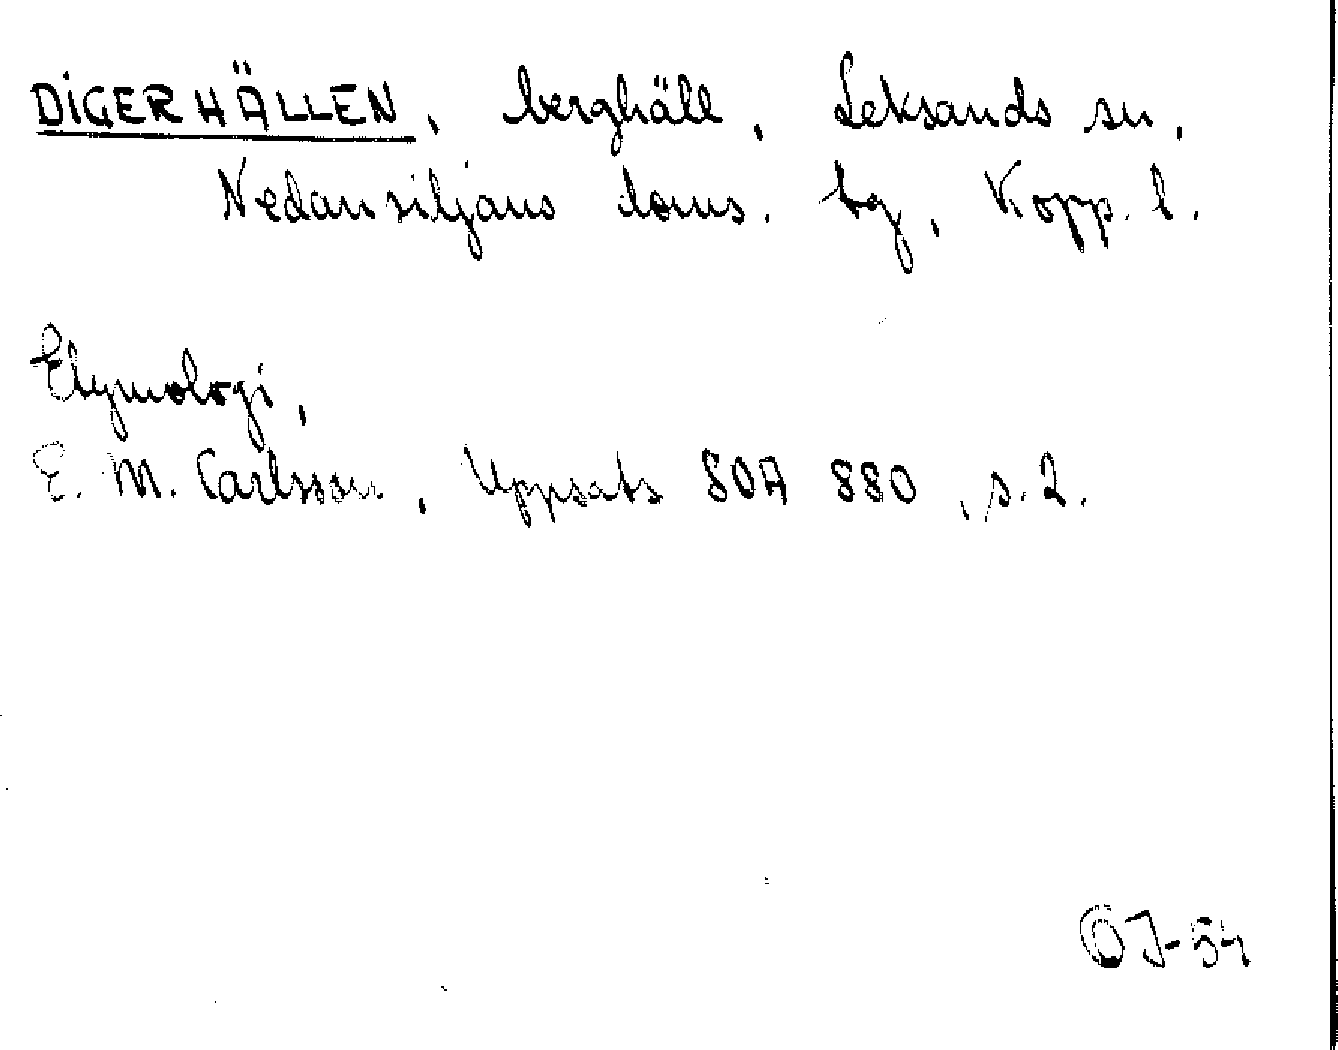 DIGERHÄLLEN, berghäll, Leksands sn,
Nedansiljans doms. tg, Kopp. l.
Etymologi,
E. M. Carlsson, Uppsats SOA 880, s. 2.
ÖJ-54